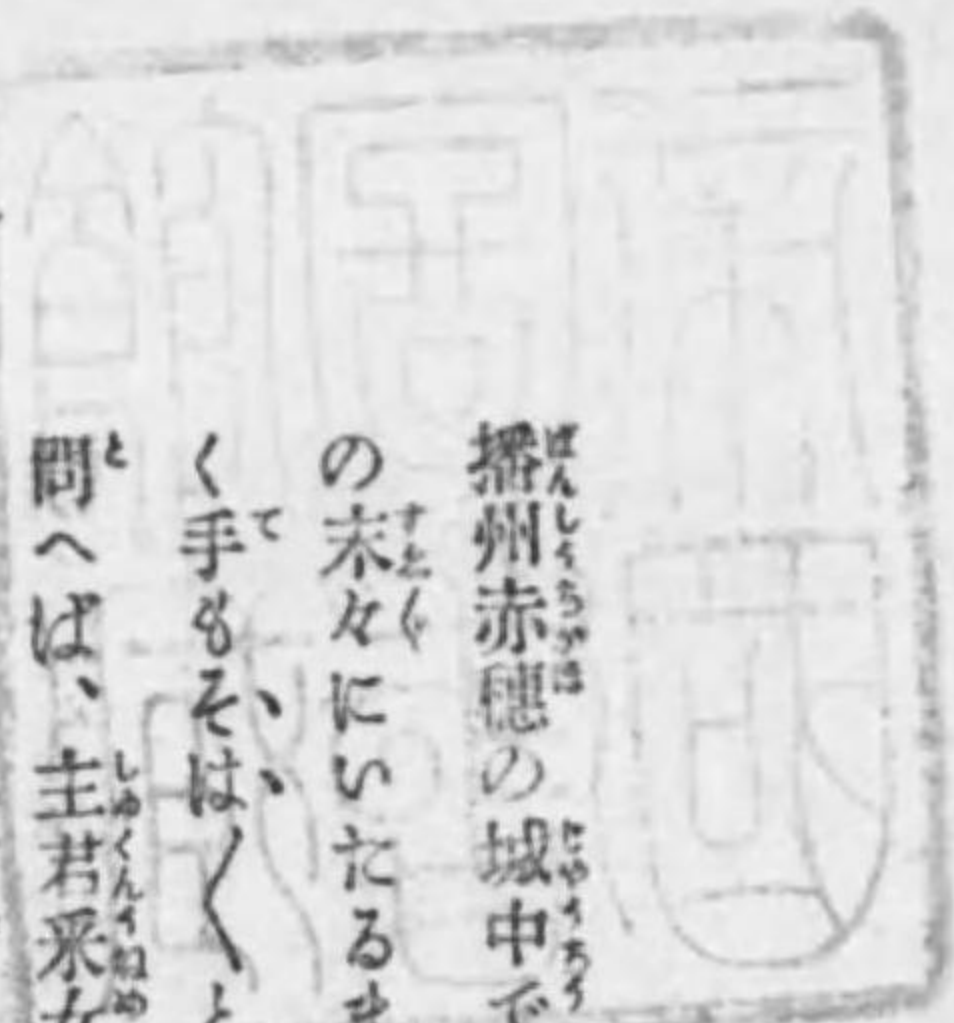 播州赤穂の城中で
の末々にいたるま
く手もそはぐと
問へば、主君采女